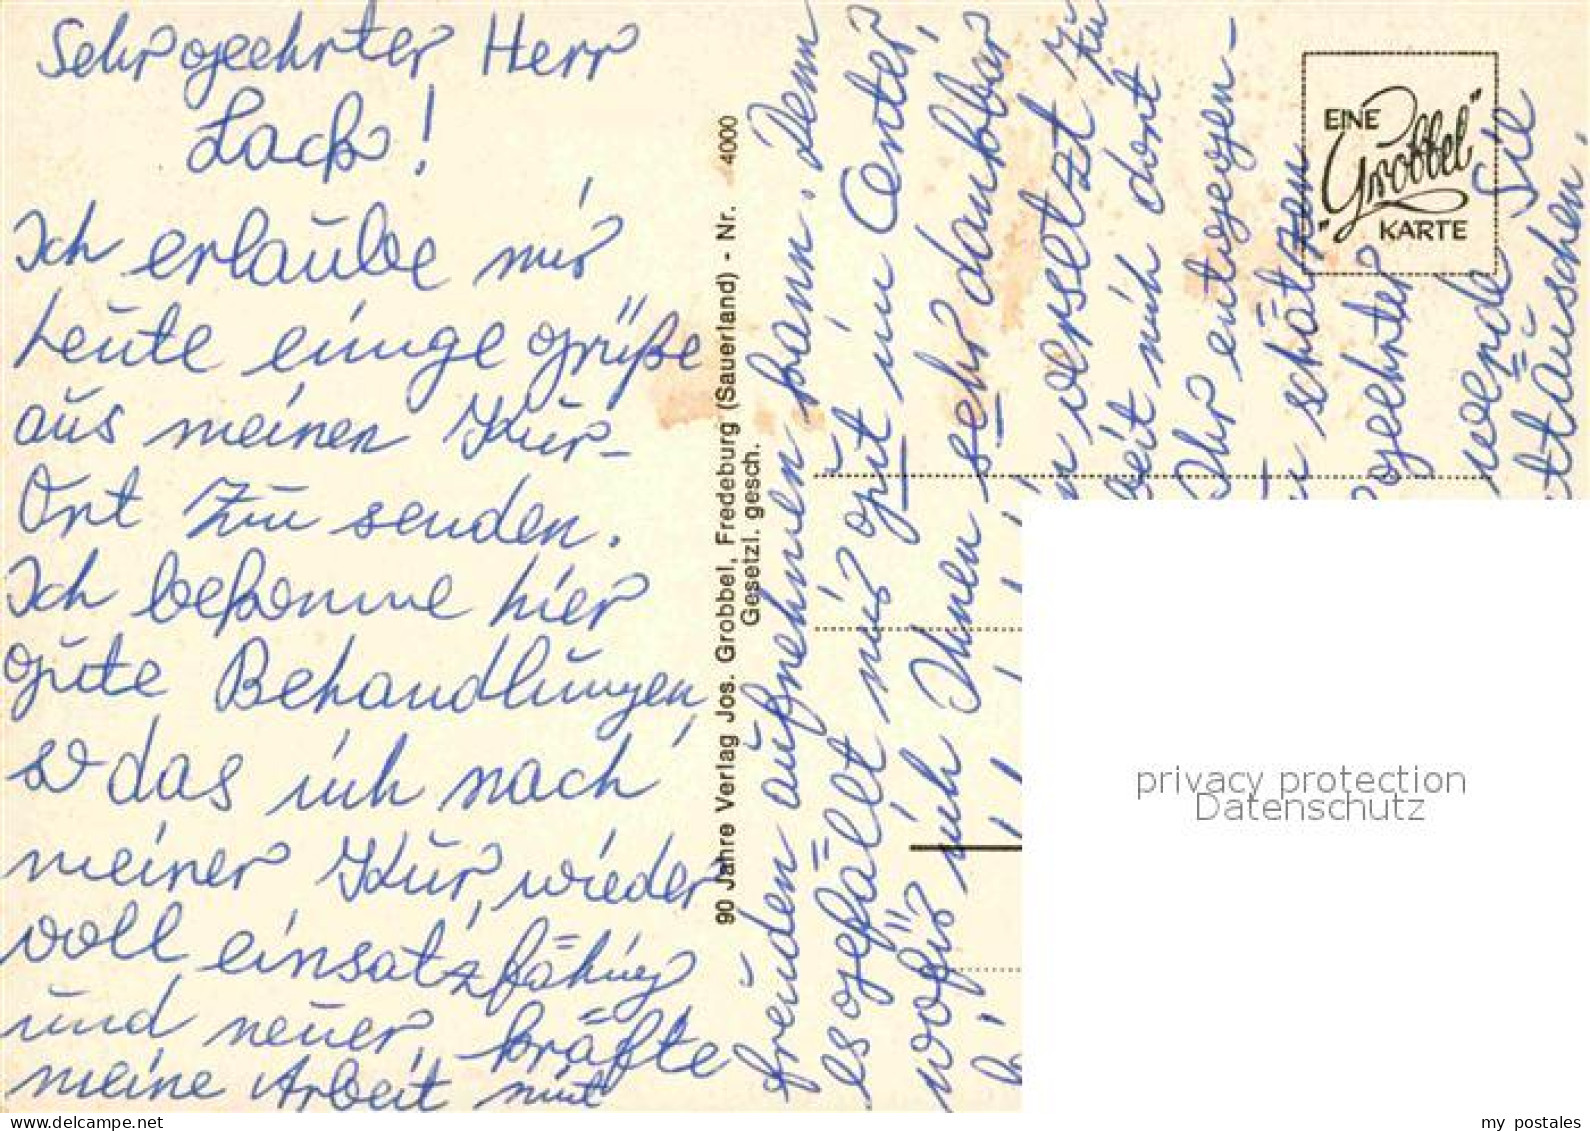 Sehr geehrter Herr
Lack!
Ich erlaube mir
heute einige Grüße
aus meinen Kur-
Ort zu senden.
Ich bekomme hier
gute Behandlungen,
so das ich nach
meiner Kur, wieder
voll einsatzfähig
und neuer, kräfte
meine Arbeit mit
90 Jahre Verlag Jos. Grobbel, Fredeburg (Sauerland) - Nr. 4000
Gesetzl. gesch.
freuden aufnehmen kann. Denn
es gefällt mir gut im Center,
wofür ich Ihnen sehr dankbar
versetzt zu
mich dort
Ihr entgegen-
schätzen
geehrter
werde Sie
EINE
"Grobbel"
KARTE
privacy protection
Datenschutz
my postales